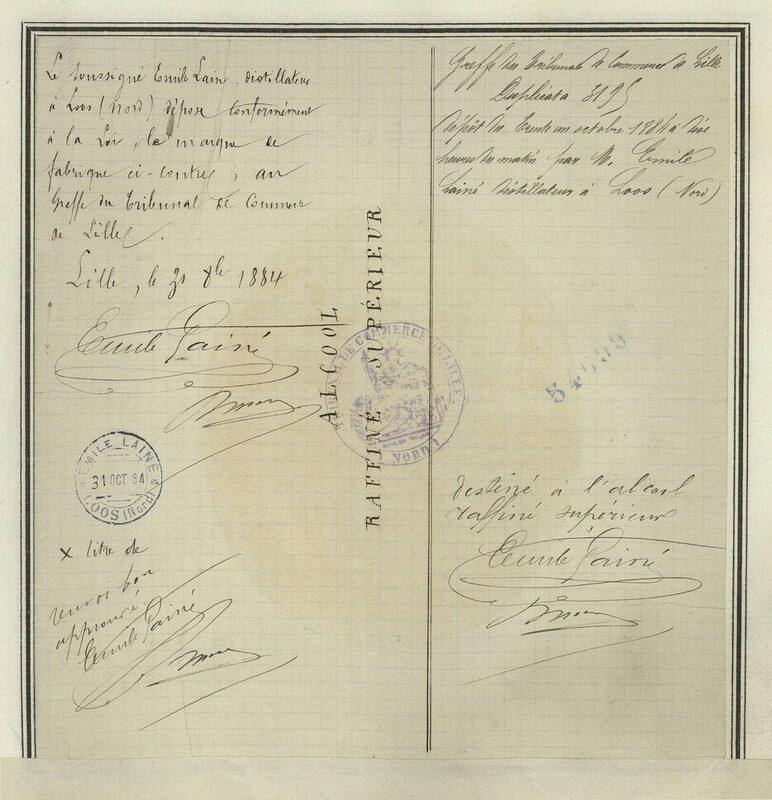 Le soussigné Emile Lainé, distillateur
à Loos (Nord) dépose conformément
à la Loi, la marque de
fabrique ci-contre, au
Greffe du Tribunal de Commerce
de Lille.
Lille, le 31 8bre 1884
Emile Lainé
EMILE LAINÉ
31 OCT 84
LOOS (Nord)
x titre de
renvoi bon
approuvé
Emile Lainé
ALCOOL
RAFFINÉ SUPÉRIEUR
TRIBUNAL DE COMMERCE DE LILLE
(NORD)
Greffe du Tribunal de Commerce de Lille
Duplicata 3195
dépôt du trente un octobre 1884 à dix
heures du matin par M. Emile
Lainé Distillateur à Loos (Nord)
Destiné à l'alcool
raffiné supérieur
Emile Lainé